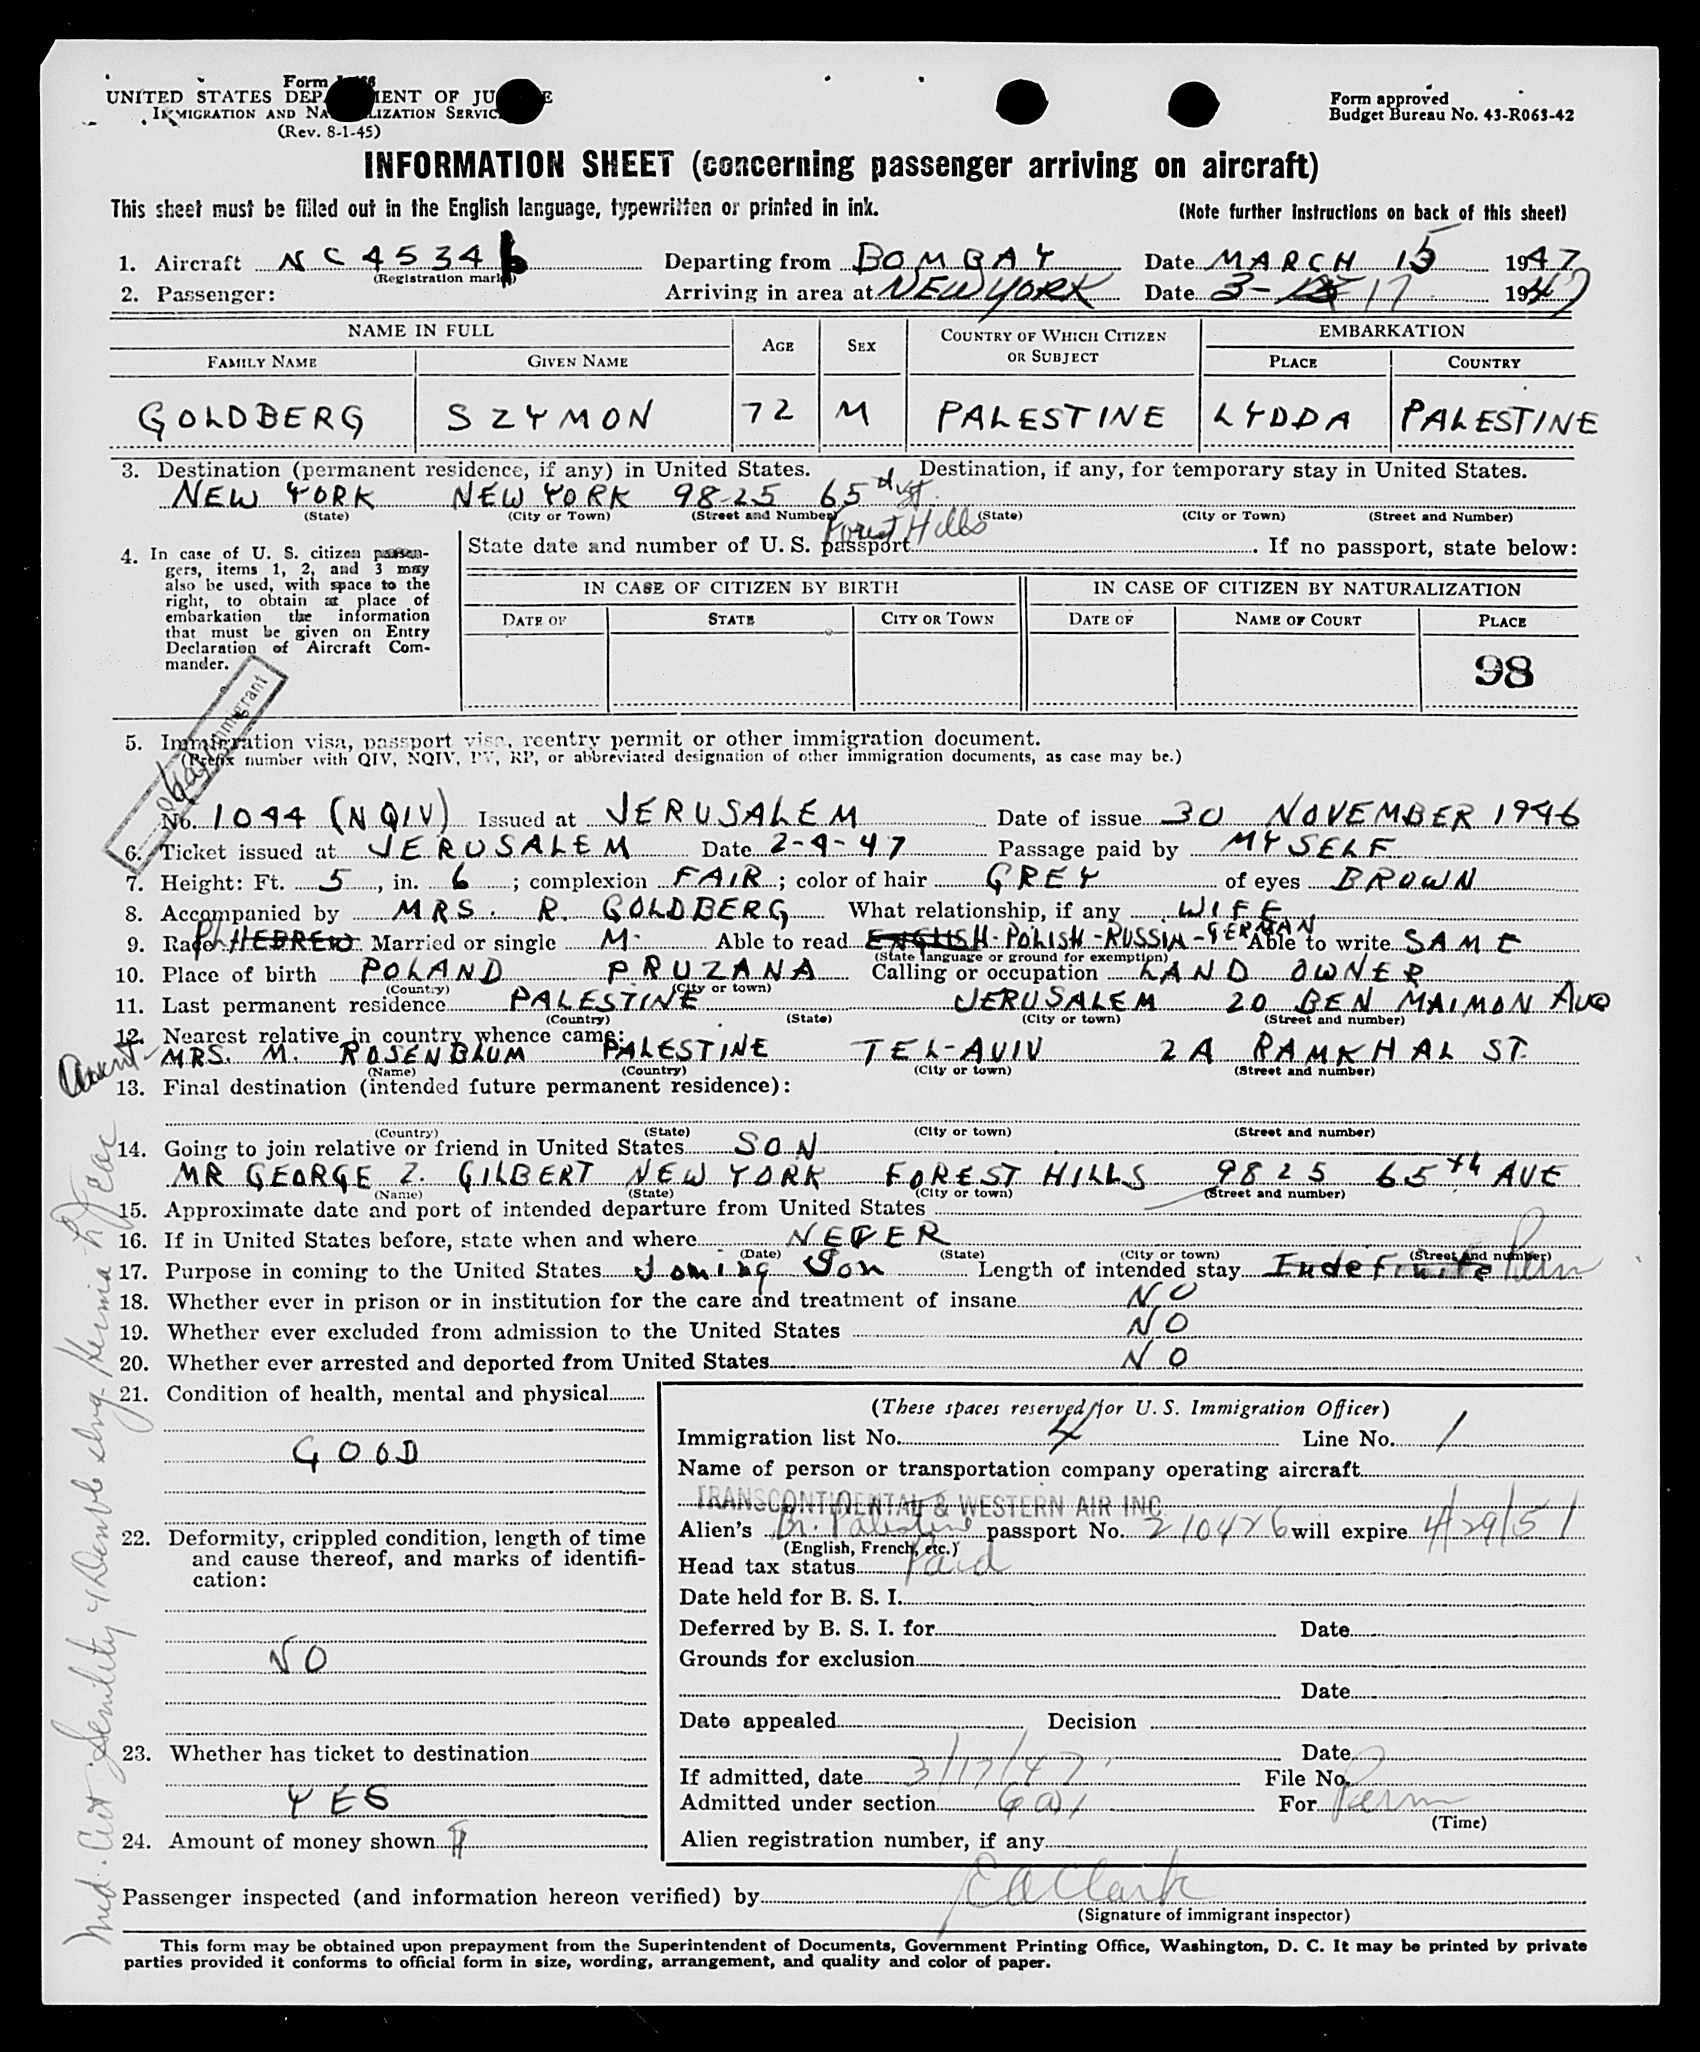 Form I-466
UNITED STATES DEPARTMENT OF JUSTICE
IMMIGRATION AND NATURALIZATION SERVICE
(Rev. 8-1-45)
Form approved
Budget Bureau No. 43-R063-42
INFORMATION SHEET (concerning passenger arriving on aircraft)
This sheet must be filled out in the English language, typewritten or printed in ink. (Note further instructions on back of this sheet)
1. Aircraft NC45346 Departing from BOMBAY Date MARCH 15 1947
(Registration marks)
2. Passenger: Arriving in area at NEW YORK Date 3- 17 1947
NAME IN FULL AGE SEX COUNTRY OF WHICH CITIZEN OR SUBJECT EMBARKATION
FAMILY NAME GIVEN NAME PLACE COUNTRY
GOLDBERG SZYMON 72 M PALESTINE LYDDA PALESTINE
3. Destination (permanent residence, if any) in United States. Destination, if any, for temporary stay in United States.
NEW YORK NEW YORK 98-25 65
(State) (City or Town) (Street and Number) (State) (City or Town) (Street and Number)
Forest Hills
4. In case of U. S. citizen passengers, items 1, 2, and 3 may also be used, with space to the right, to obtain at place of embarkation the information that must be given on Entry Declaration of Aircraft Commander.
State date and number of U. S. passport. If no passport, state below:
IN CASE OF CITIZEN BY BIRTH IN CASE OF CITIZEN BY NATURALIZATION
DATE OF STATE CITY OR TOWN DATE OF NAME OF COURT PLACE
98
immigrant
5. Immigration visa, passport visa, reentry permit or other immigration document.
(Prefix number with QIV, NQIV, PV, RP, or abbreviated designation of other immigration documents, as case may be.)
No. 1044 (NQIV) Issued at JERUSALEM Date of issue 30 NOVEMBER 1946
6. Ticket issued at JERUSALEM Date 2-4-47 Passage paid by MYSELF
7. Height: Ft. 5, in. 6; complexion FAIR; color of hair GREY of eyes BROWN
8. Accompanied by MRS. R. GOLDBERG What relationship, if any WIFE
9. Race HEBREW Married or single M. Able to read ENGLISH-POLISH-RUSSIA-GERMAN Able to write SAME
(State language or ground for exemption)
10. Place of birth POLAND PRUZANA Calling or occupation LAND OWNER
(Country) (City or town)
11. Last permanent residence PALESTINE JERUSALEM 20 BEN MAIMON Ave
(Country) (State) (City or town) (Street and number)
12. Nearest relative in country whence came:
Aunt- MRS. M. ROSENBLUM PALESTINE TEL-AVIV 2A RAMKHAL ST.
(Name) (Country) (City or town) (Street and number)
13. Final destination (intended future permanent residence):
(Country) (State) (City or town) (Street and number)
14. Going to join relative or friend in United States SON
MR GEORGE Z. GILBERT NEW YORK FOREST HILLS 9825 65th AVE
(Name) (State) (City or town) (Street and number)
15. Approximate date and port of intended departure from United States
16. If in United States before, state when and where NEVER
(Date) (State) (City or town) (Street and number)
17. Purpose in coming to the United States Joning Son Length of intended stay Indefinite Perm
18. Whether ever in prison or in institution for the care and treatment of insane NO
19. Whether ever excluded from admission to the United States NO
20. Whether ever arrested and deported from United States NO
21. Condition of health, mental and physical
GOOD
22. Deformity, crippled condition, length of time and cause thereof, and marks of identification:
NO
23. Whether has ticket to destination
YES
24. Amount of money shown
(These spaces reserved for U. S. Immigration Officer)
Immigration list No. 4 Line No. 1
Name of person or transportation company operating aircraft
TRANSCONTINENTAL & WESTERN AIR INC
Alien's Br. Palestine passport No. 210426 will expire 4/29/51
(English, French, etc.)
Head tax status Paid
Date held for B. S. I.
Deferred by B. S. I. for Date
Grounds for exclusion
Date
Date appealed Decision
Date
If admitted, date 3/17/47 File No.
Admitted under section 6(a)1 For Perm
(Time)
Alien registration number, if any
Passenger inspected (and information hereon verified) by EA Clark
(Signature of immigrant inspector)
This form may be obtained upon prepayment from the Superintendent of Documents, Government Printing Office, Washington, D. C. It may be printed by private
parties provided it conforms to official form in size, wording, arrangement, and quality and color of paper.
Med. Cert Senility & Double Ing. Hernia